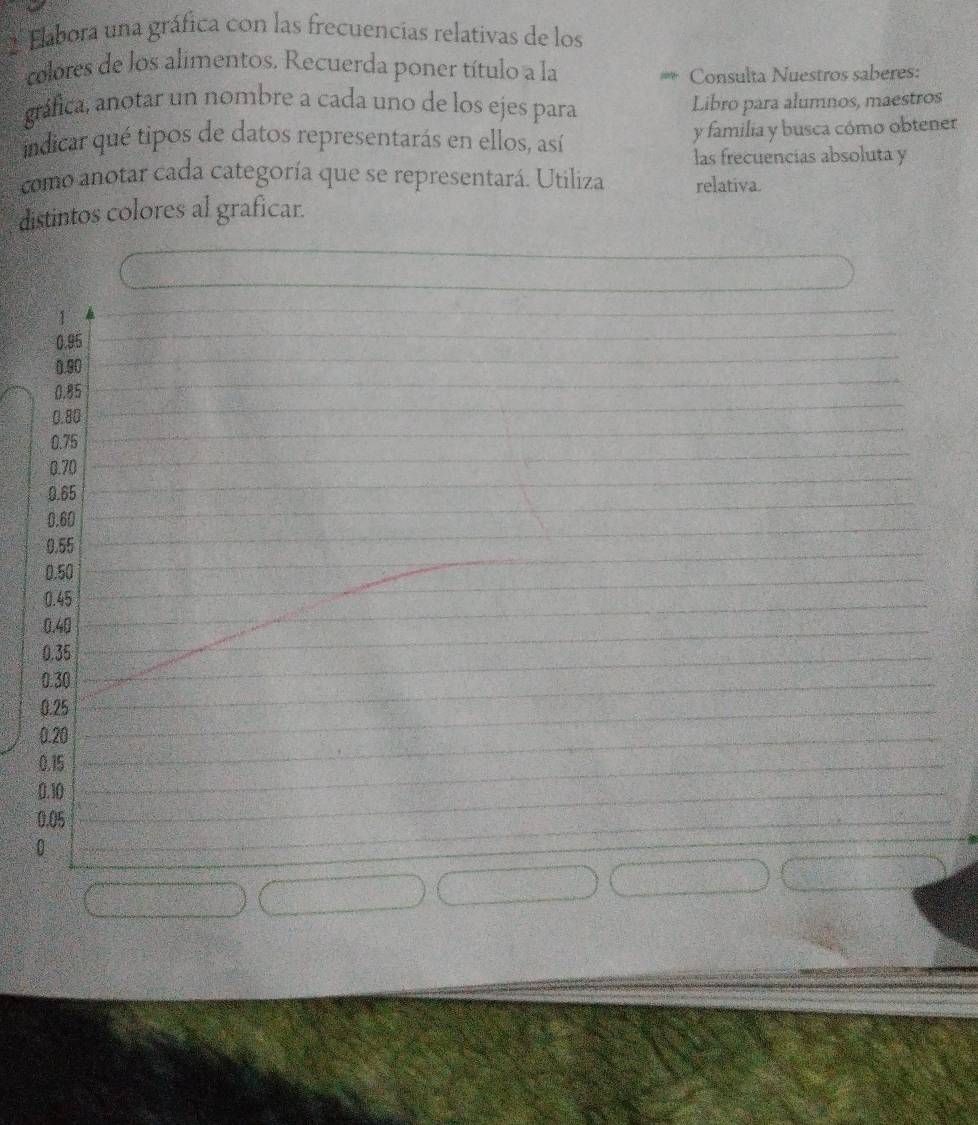 2. Elabora una gráfica con las frecuencias relativas de los
colores de los alimentos. Recuerda poner título a la
gráfica, anotar un nombre a cada uno de los ejes para
indicar qué tipos de datos representarás en ellos, así
como anotar cada categoría que se representará. Utiliza
distintos colores al graficar.
Consulta Nuestros saberes:
Libro para alumnos, maestros
y familia y busca cómo obtener
las frecuencias absoluta y
relativa.
1
0.95
0.90
0.85
0.80
0.75
0.70
0.65
0.60
0.55
0.50
0.45
0.40
0.35
0.30
0.25
0.20
0.15
0.10
0.05
0